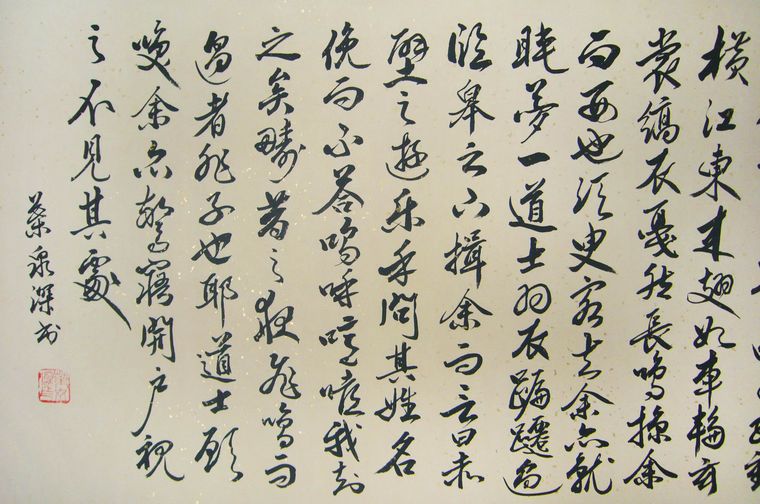 横江東来翅如車輪玄
裳縞衣戛然長鳴掠余
而西也須臾客去余亦就
睡夢一道士羽衣蹁躚過
臨皋之下揖余而言曰赤
壁之遊樂乎問其姓名
俛而不答嗚呼噫嘻我知
之矣疇昔之夜飛鳴而
過者非子也耶道士顧
笑余亦驚寤開户視
之不見其處
泉深书